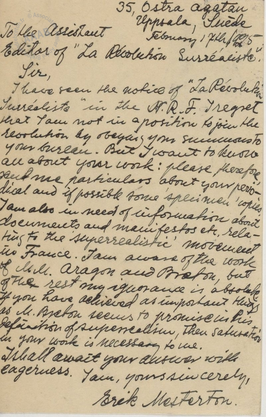 35, Ostra Agatan
Uppsala, Suède
February 17th/1925
To the Assistant
Editor of "La Révolution Surréaliste".
Sir,
I have seen the notice of "La Révolution
Surréaliste" in the N.R.F. I regret
that I am not in a position to join the
revolution by obeying your summons to
your bureau. But I want to know
all about your work: please, therefore
send me particulars about your perio-
dical and if possible some specimen copies
I am also in need of information about
documents and manifestos etc. rela-
ting to the superrealistic movement
in France. I am aware of the work
of M.M. Aragon and Breton, but
of the rest my ignorance is absolute.
If you have achieved as important things
as M. Breton seems to promise in his
definition of superrealism, then saturation
in your work is necessary to me.
I shall await your answer with
eagerness. I am, yours sincerely,
Erik Mesterton.